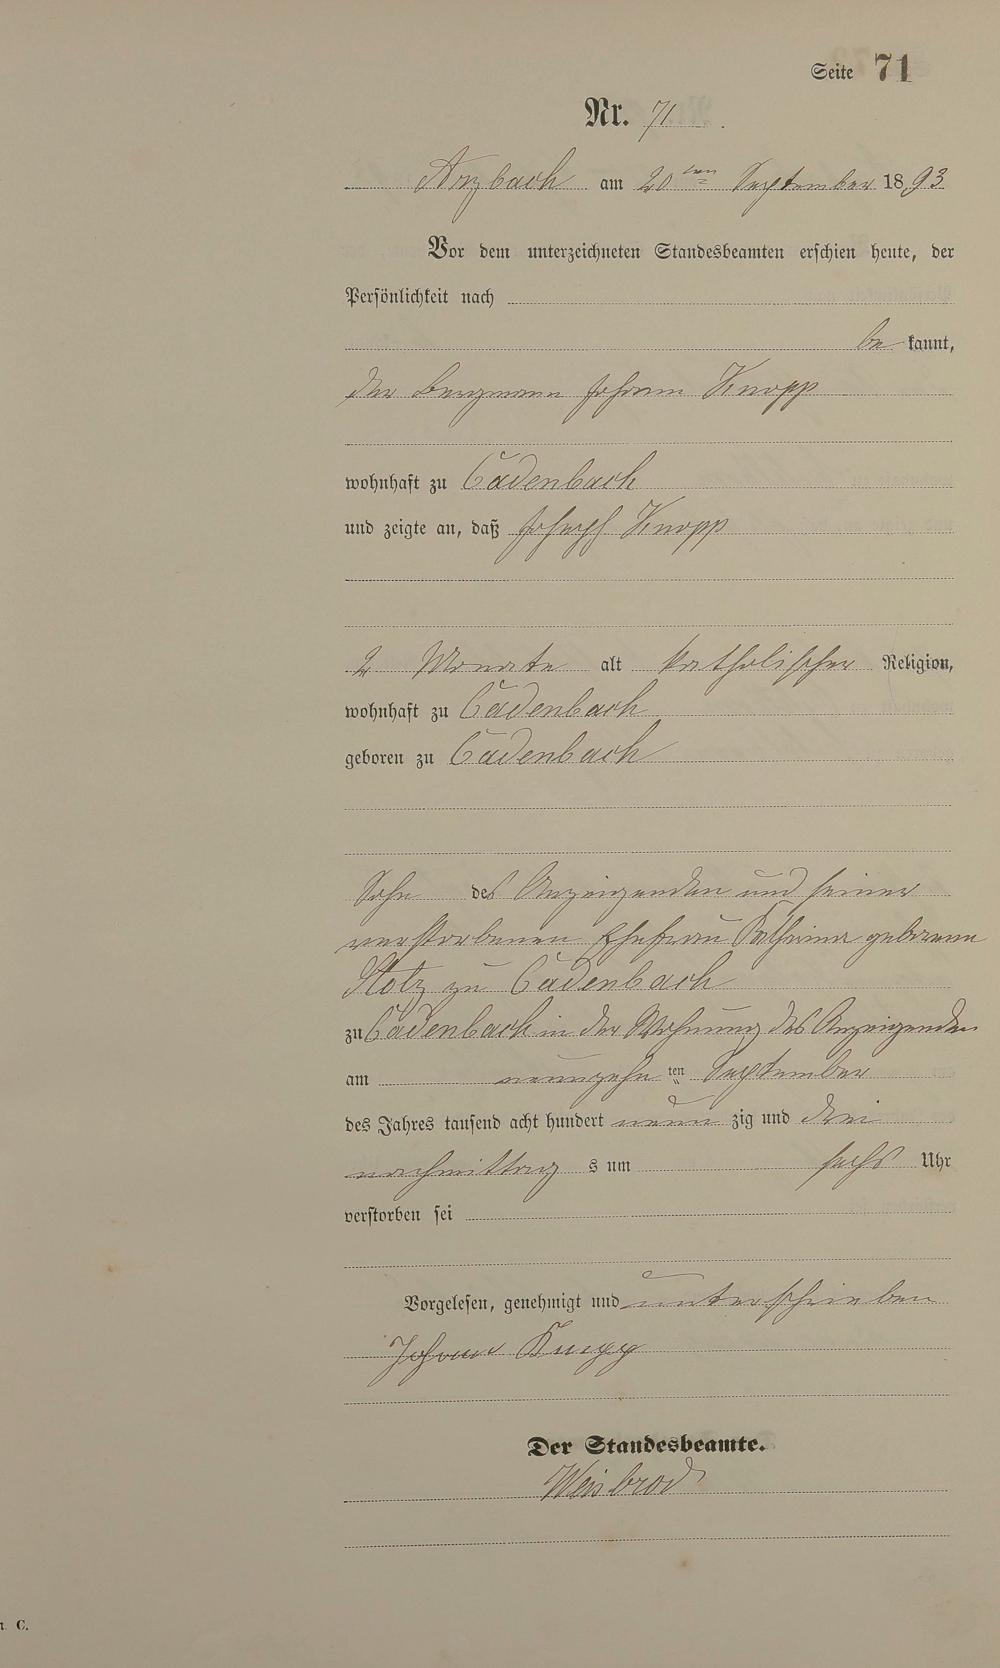 Seite 71
Nr. 71
Arzbach am 20ten September 1893
Vor dem unterzeichneten Standesbeamten erschien heute, der
Persönlichkeit nach
be kannt,
der Bergmann Johann Knopp
wohnhaft zu Cadenbach
und zeigte an, daß Joseph Knopp
2 Monate alt katholischer Religion,
wohnhaft zu Cadenbach
geboren zu Cadenbach
Sohn des Anzeigenden und seiner
verstorbenen Ehefrau Katharina geborenen
Stotz zu Cadenbach
zu Cadenbach in der Wohnung des Anzeigenden
am neunzehn ten September
des Jahres tausend acht hundert neun zig und drei
nachmittag s um sechs Uhr
verstorben sei
Vorgelesen, genehmigt und unterschrieben
Johann Knopp
Der Standesbeamte.
Weisbrod
C.